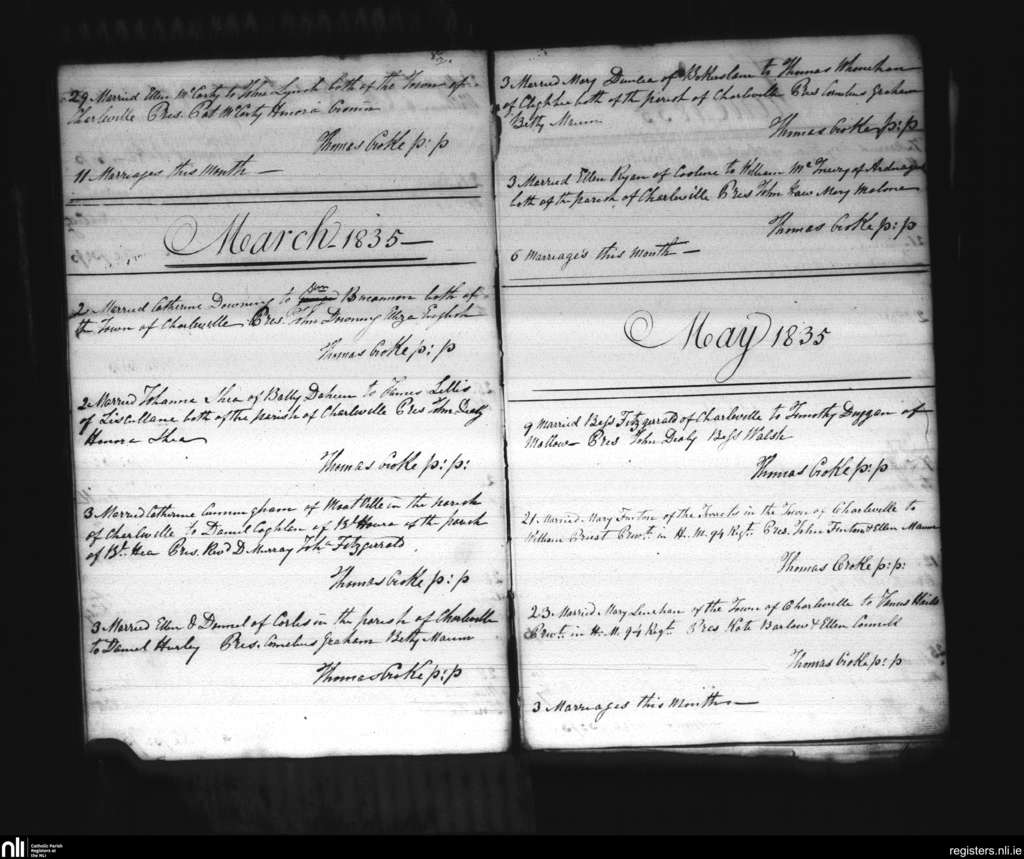 29 Married Ellen McCarty to John Lynch both of the Town of
Charleville Pres. Pat McCarty Honora Cronin
Thomas Croke p: p
11 Marriages this Month
March 1835
2 Married Catherine Downing to Buconnon both of
the Town of Charleville Pres. John Downing Eliza English
Thomas Croke p: p
2 Married Johanna Shea of Bally Daheen to James Lillis
of Liscullane both of the parish of Charleville Pres John Daly
Honora Shea
Thomas Croke p: p:
3 Married Catherine Cunningham of Moat Ville in the parish
of Charleville to Daniel Coghlan of of the parish
of Pres. Revd D. Murray Fitzgerrald
Thomas Croke p: p
3 Married Ellen O Donnel of in the parish of Charleville
to Daniel Hurley Pres. Cornelius Graham Betty Mann
Thomas Croke p: p
3 Married Mary Dunlea of to Thomas
of both of the parish of Charleville Pres Cornelius Graham
Betty Mann
Thomas Croke p: p
3 Married Ellen Ryan of Cooline to William of
both of the parish of Charleville Pres John Mary Malone
Thomas Croke p: p
6 Marriages this Month
May 1835
9 Married Bess Fitzgerrald of Charleville to Timothy Duggan of
Mallow Pres John Daly Bess Walsh
Thomas Croke p: p
21 Married Mary Finton of the in the Town of Charleville to
William Privt. in H. M. 94 Regt. Pres. John Finton & Ellen
Thomas Croke p: p:
23 Married Mary Linehan of the Town of Charleville to James
Privt. in H. M. 94 Regt. Pres Kate Barlow & Ellen Connell
Thomas Croke p: p
3 Marriages this Month
nli
Catholic Parish
Registers at
the NLI
registers.nli.ie